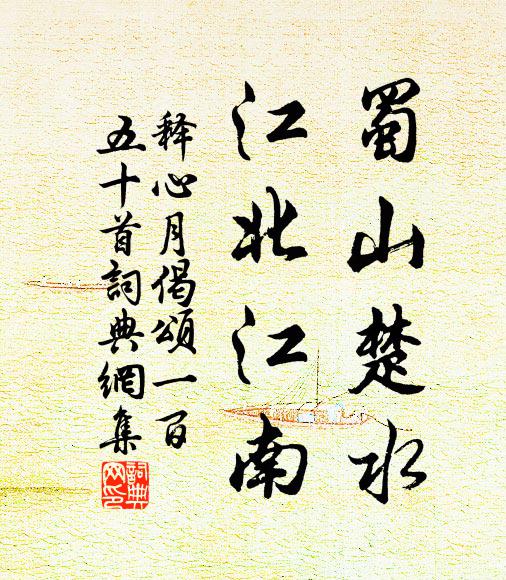 蜀山楚水
江北江南
释心月偈頌一百
五十首詞典網集
詞典
网印